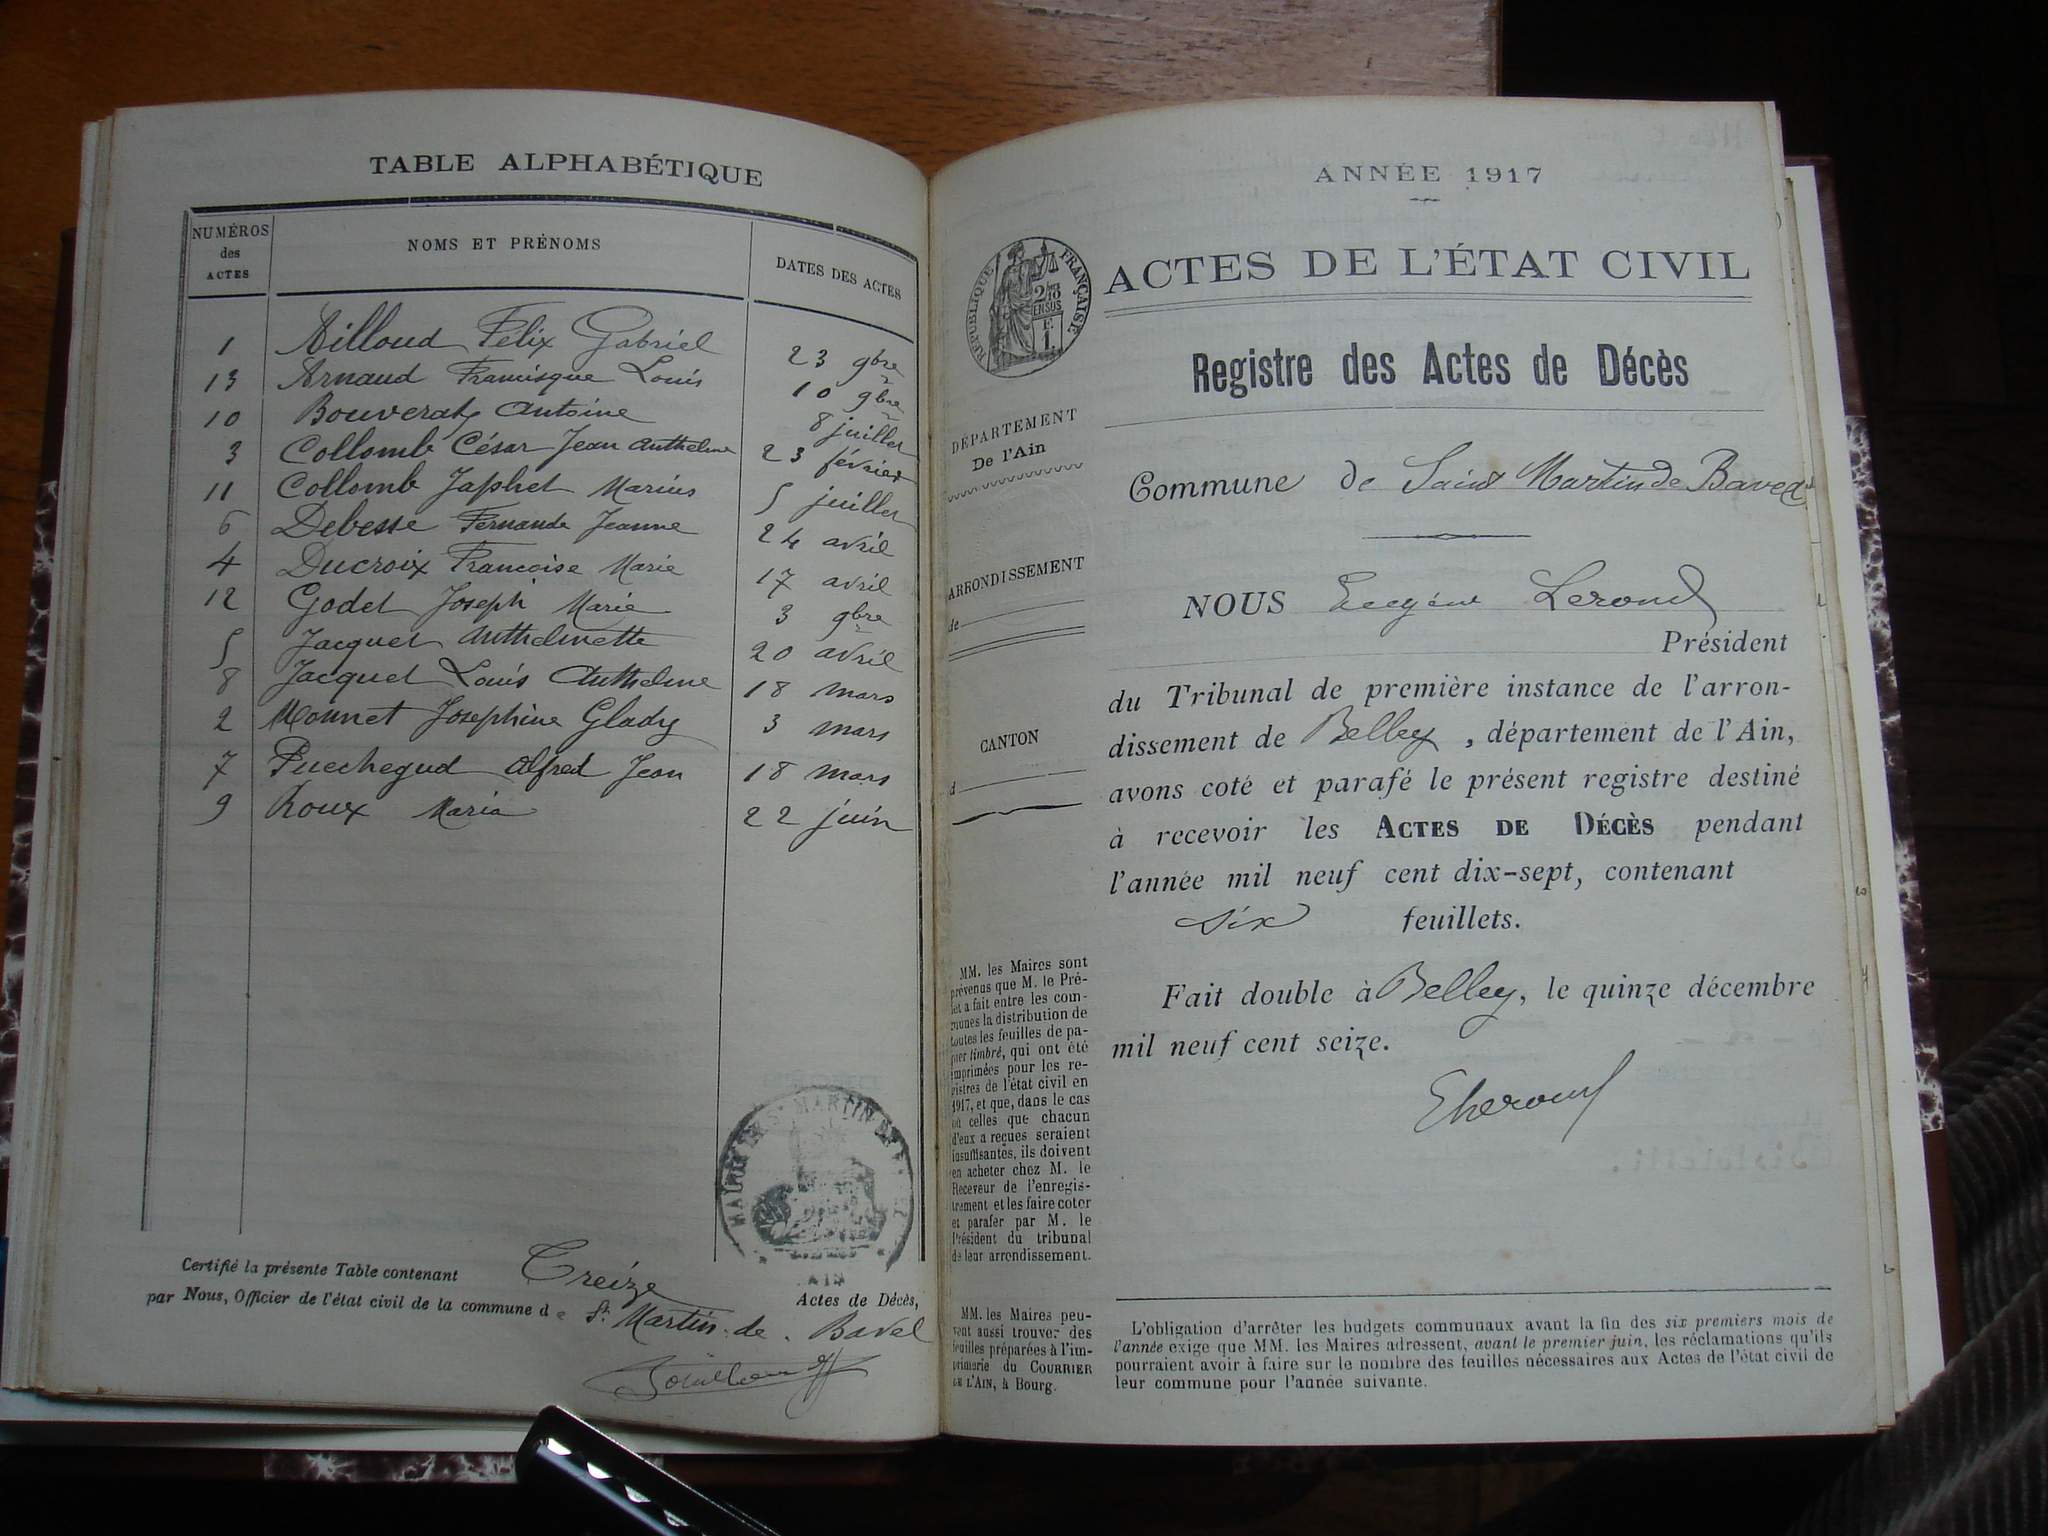 TABLE ALPHABÉTIQUE
NUMÉROS
des
ACTES
NOMS ET PRÉNOMS
DATES DES ACTES
1 Ailloud Félix Gabriel 23 9bre
13 Arnaud Francisque Louis 10 9bre
10 Bouverat Antoine 8 juillet
3 Collomb César Jean Anthelme 23 février
11 Collomb Japhet Marius 5 juillet
6 Debesse Fernande Jeanne 24 avril
4 Ducroix Francoise Marie 17 avril
12 Godet Joseph Marie 3 9bre
5 Jacquet Anthelmette 20 avril
8 Jacquet Louis Anthelme 18 mars
2 Monnet Josephine Glady 3 mars
7 Puechegud Alfred Jean 18 mars
9 Roux Maria 22 juin
Certifié la présente Table contenant Treize Actes de Décès,
par Nous, Officier de l'état civil de la commune de St Martin-de-Bavel
ANNÉE 1917
ACTES DE L'ÉTAT CIVIL
RÉPUBLIQUE FRANÇAISE
2/10
EN SUS
F.
1.
Registre des Actes de Décès
DÉPARTEMENT
De l'Ain
Commune de Saint Martin de Bavel
ARRONDISSEMENT
de
NOUS Eugène Lerond
Président
du Tribunal de première instance de l'arron-
dissement de Belley, département de l'Ain,
CANTON
d
avons coté et parafé le présent registre destiné
à recevoir les ACTES DE DÉCÈS pendant
l'année mil neuf cent dix-sept, contenant
six feuillets.
Fait double à Belley, le quinze décembre
mil neuf cent seize.
MM. les Maires sont
prévenus que M. le Pré-
fet a fait entre les com-
munes la distribution de
toutes les feuilles de pa-
pier timbré, qui ont été
imprimées pour les re-
gistres de l'état civil en
1917, et que, dans le cas
où celles que chacun
d'eux a reçues seraient
insuffisantes, ils doivent
en acheter chez M. le
Receveur de l'enregis-
trement et les faire coter
et parafer par M. le
Président du tribunal
de leur arrondissement.
MM. les Maires peu-
vent aussi trouver des
feuilles préparées à l'im-
primerie du COURRIER
DE L'AIN, à Bourg.
L'obligation d'arrêter les budgets communaux avant la fin des six premiers mois de
l'année exige que MM. les Maires adressent, avant le premier juin, les réclamations qu'ils
pourraient avoir à faire sur le nombre des feuilles nécessaires aux Actes de l'état civil de
leur commune pour l'année suivante.